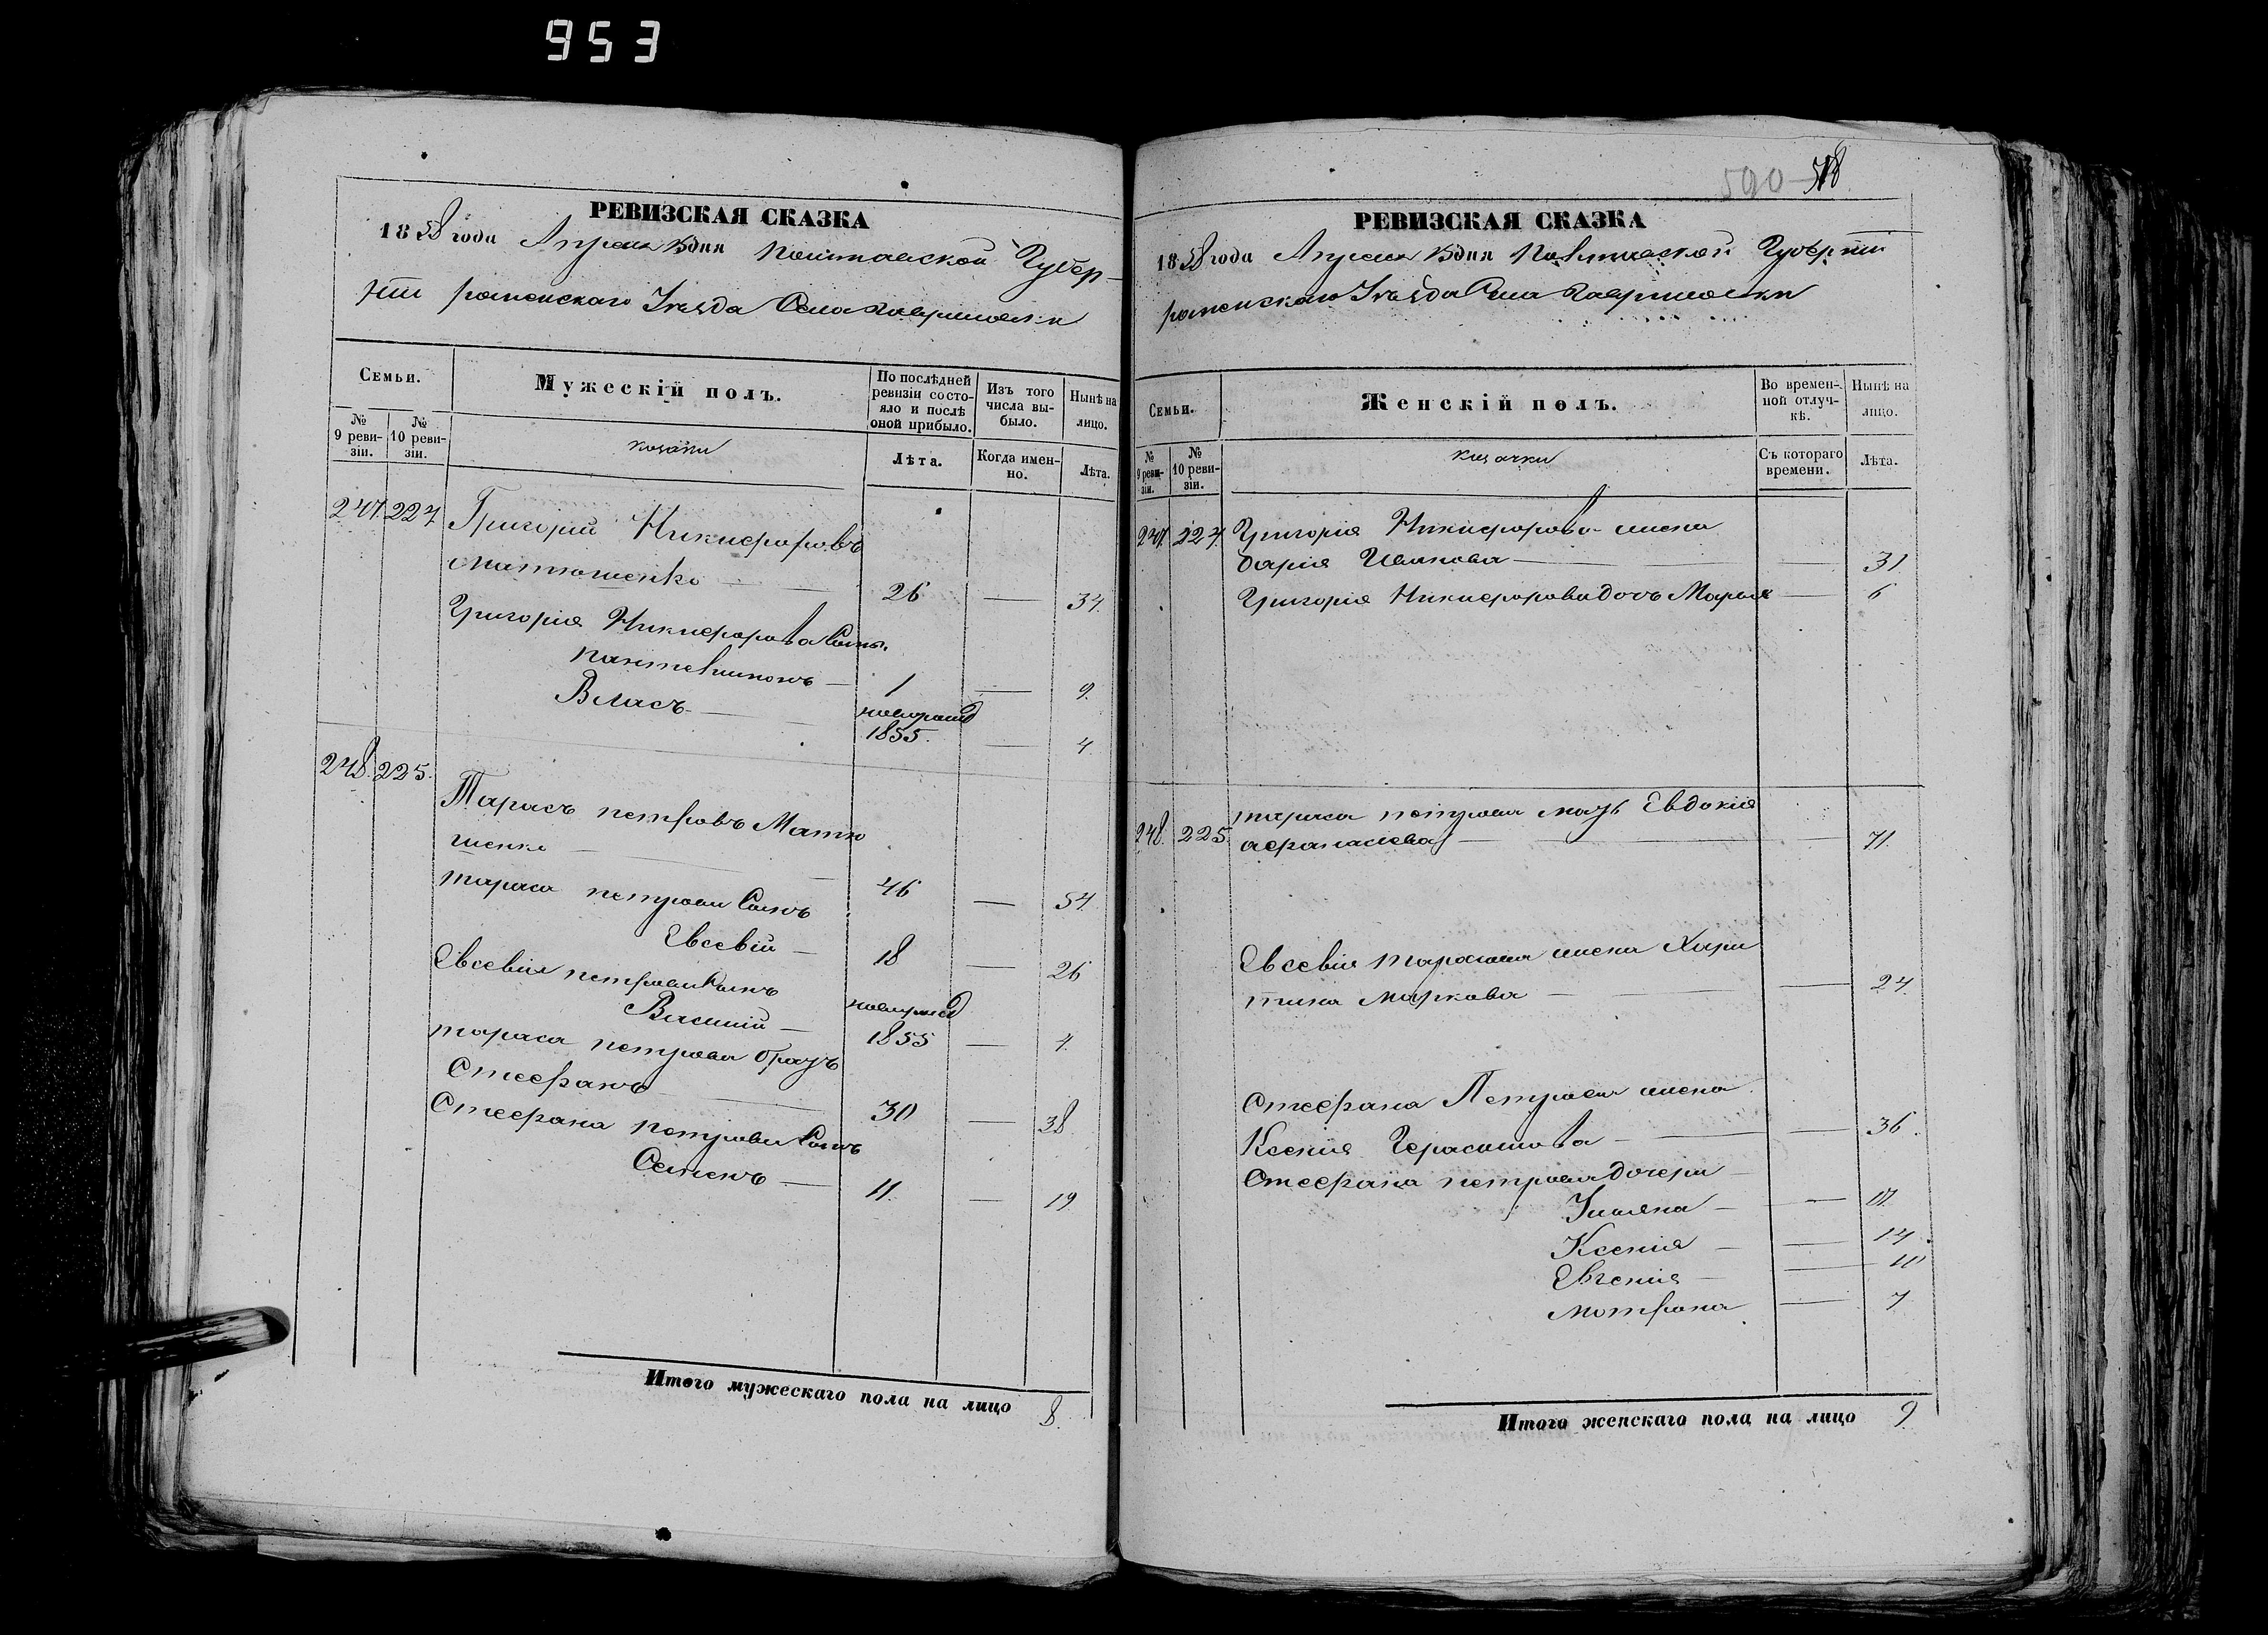 953
РЕВИЗСКАЯ СКАЗКА
1858 года Апреля 15 дня Полтавской Губер-
нии роменскаго Уезда Села Гавришовки
Семьи.
Мужескій полъ.
По послѣдней ревизіи состояло и послѣ оной прибыло.
Изъ того числа выбыло.
Нынѣ на лицо.
№ 9 ревизіи.
№ 10 ревизіи.
козаки
Лѣта.
Когда именно.
Лѣта.
247. 224. Григорій Никифоровъ
Матюшенко — 26 — 34.
Григорія Никифорова Сынъ.
Пантелимонъ — 1 — 9.
Власъ — новорожд
1855. — 4.
248. 225. Тарасъ петровъ Матю
шенко — 46 — 54.
тараса петрова Сынъ
Евсевій — 18 — 26
Евсевія петрова Сынъ
Василій — новорожд 1855 — 4.
тараса петрова братъ
Стефанъ — 30 — 38
Стефана петрова Сынъ
Семенъ — 11. — 19
Итого мужескаго пола на лицо 8.
590 518
РЕВИЗСКАЯ СКАЗКА
1858 года Апреля 15 дня Полтавской Губерніи
роменскаго Уѣзда Села Гавришовки
Семьи.
Женскій полъ.
Во временной отлучкѣ.
Нынѣ на лицо.
№ 9 ревизіи.
№ 10 ревизіи.
козачки
Съ котораго времени.
Лѣта.
247. 224. Григорія Никифорова жена
дарія Иванова — — 31
Григорія Никифорова дочь Марья — 6
248. 225. тараса петрова мать Евдокія
афанасиева — — 71.
Евсевія тарасова жена Хари
тина Маркова — — 24.
Стефана Петрова жена
Ксенія Герасимова — — 36.
Стефана петрова дочери
Ульяна — — 17.
Ксенія — — 14.
Евгенія — — 10
мотрона — 7
Итого женскаго пола на лицо 9.